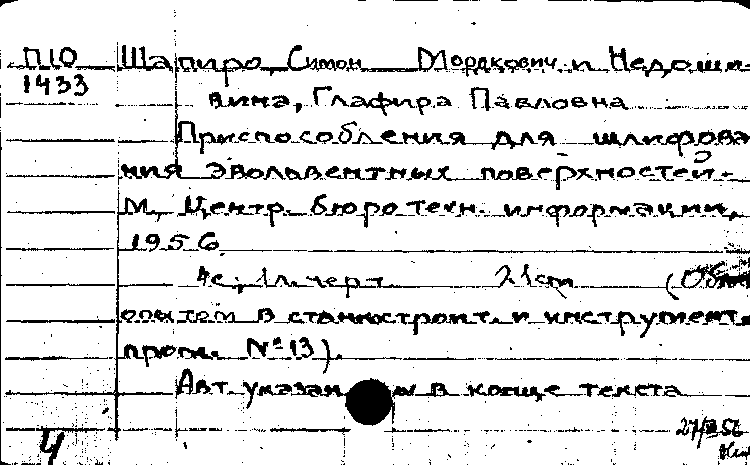 П10 Шапиро, Симон Мордкович и Недоши-
1433
вина, Глафира Павловна
Приспособления для шлифова
ния эвольвентных поверхностей.-
М., Центр. бюро техн. информации,
1956.
4с.; 1 л. черт. 21 cm (Обмен
опытом в станкостроит. и инструмент.
пром. № 13).
Авт. указан в конце текста
27/VIII 56
4